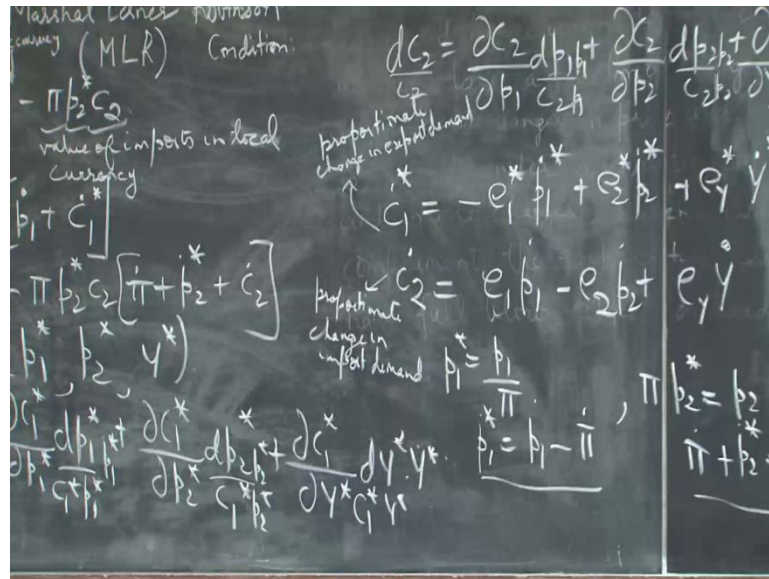 Marshal Lerner Robinson
(MLR) Condition:
- πp₂* c₂
value of imports in local
currency
ṗ₁ + ċ₁*]
- πp₂* c₂ [π̇ + ṗ₂* + ċ₂]
p₁*, p₂*, y*)
∂c₁*/∂p₁* dp₁*/c₁*p₁* p₁* + ∂c₁*/∂p₂* dp₂*p₂*/c₁*p₂* + ∂c₁*/∂y* dy*.y*/c₁*y*
dc₂/c₂ = ∂c₂/∂p₁ dp₁p₁/c₂p₁ + ∂c₂/∂p₂ dp₂p₂/c₂p₂ +
proportimate
change in export demand
ċ₁* = -e₁*ṗ₁* + e₂*ṗ₂* + e_y* ẏ
ċ₂ = e₁ṗ₁ - e₂ṗ₂ + e_y ẏ
proportimate
change in
import demand
p₁* = p₁/π, πp₂* = p₂
ṗ₁* = ṗ₁ - π̇
π̇ + ṗ₂*